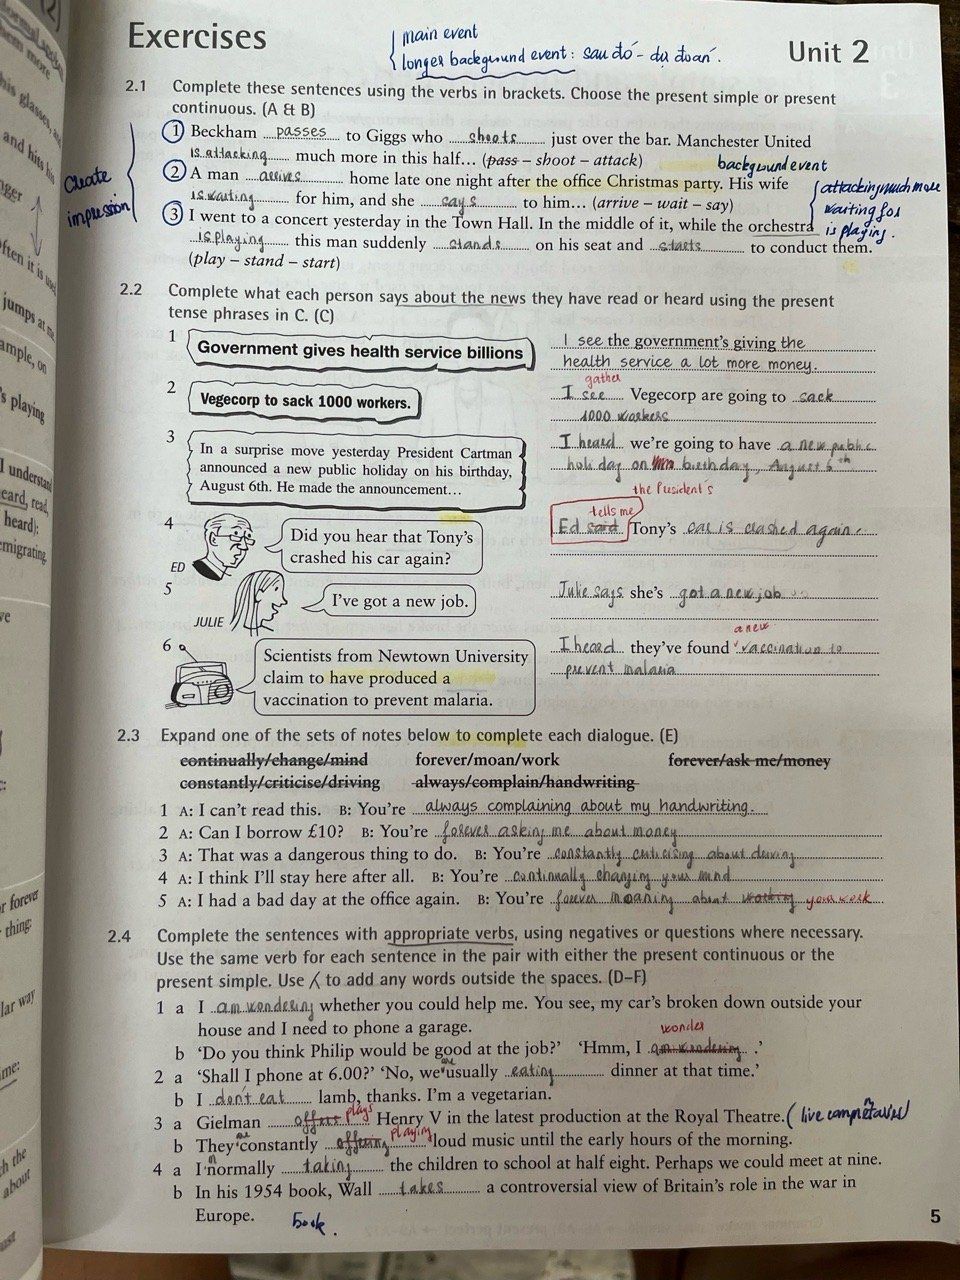 Exercises
main event
longer background event : sau đó - dự đoán .
Unit 2
2.1 Complete these sentences using the verbs in brackets. Choose the present simple or present
continuous. (A & B)
1 Beckham passes to Giggs who shoots just over the bar. Manchester United
is attacking much more in this half… (pass – shoot – attack)
background event
2 A man arrives home late one night after the office Christmas party. His wife
is waiting for him, and she says to him… (arrive – wait – say)
3 I went to a concert yesterday in the Town Hall. In the middle of it, while the orchestra
is playing this man suddenly stands on his seat and starts to conduct them.
(play – stand – start)
create
impression
attacking much more
waiting for
is playing .
2.2 Complete what each person says about the news they have read or heard using the present
tense phrases in C. (C)
1 Government gives health service billions
I see the government's giving the
health service a lot more money.
2 Vegecorp to sack 1000 workers.
gather
I see Vegecorp are going to sack
1000 workers
3 In a surprise move yesterday President Cartman
announced a new public holiday on his birthday,
August 6th. He made the announcement…
I heard we're going to have a new public
holiday on birthday, August 6th
the President's
4 Did you hear that Tony's
crashed his car again?
ED
tells me
Ed said Tony's car is crashed again.
5 I've got a new job.
JULIE
Julie says she's got a new job
6 Scientists from Newtown University
claim to have produced a
vaccination to prevent malaria.
a new
I heard they've found vaccination to
prevent malaria
2.3 Expand one of the sets of notes below to complete each dialogue. (E)
continually/change/mind forever/moan/work forever/ask me/money
constantly/criticise/driving always/complain/handwriting
1 A: I can't read this. B: You're always complaining about my handwriting.
2 A: Can I borrow £10? B: You're forever asking me about money
3 A: That was a dangerous thing to do. B: You're constantly criticising about driving
4 A: I think I'll stay here after all. B: You're continually changing your mind
5 A: I had a bad day at the office again. B: You're forever moaning about working your work
2.4 Complete the sentences with appropriate verbs, using negatives or questions where necessary.
Use the same verb for each sentence in the pair with either the present continuous or the
present simple. Use ⁁ to add any words outside the spaces. (D–F)
1 a I am wondering whether you could help me. You see, my car's broken down outside your
house and I need to phone a garage.
wonder
b 'Do you think Philip would be good at the job?' 'Hmm, I am wondering .'
2 a 'Shall I phone at 6.00?' 'No, we are usually eating dinner at that time.'
b I don't eat lamb, thanks. I'm a vegetarian.
3 a Gielman offers plays Henry V in the latest production at the Royal Theatre.
b They are constantly offering playing loud music until the early hours of the morning.
4 a I'm normally taking the children to school at half eight. Perhaps we could meet at nine.
b In his 1954 book, Wall takes a controversial view of Britain's role in the war in
Europe.
book .
5